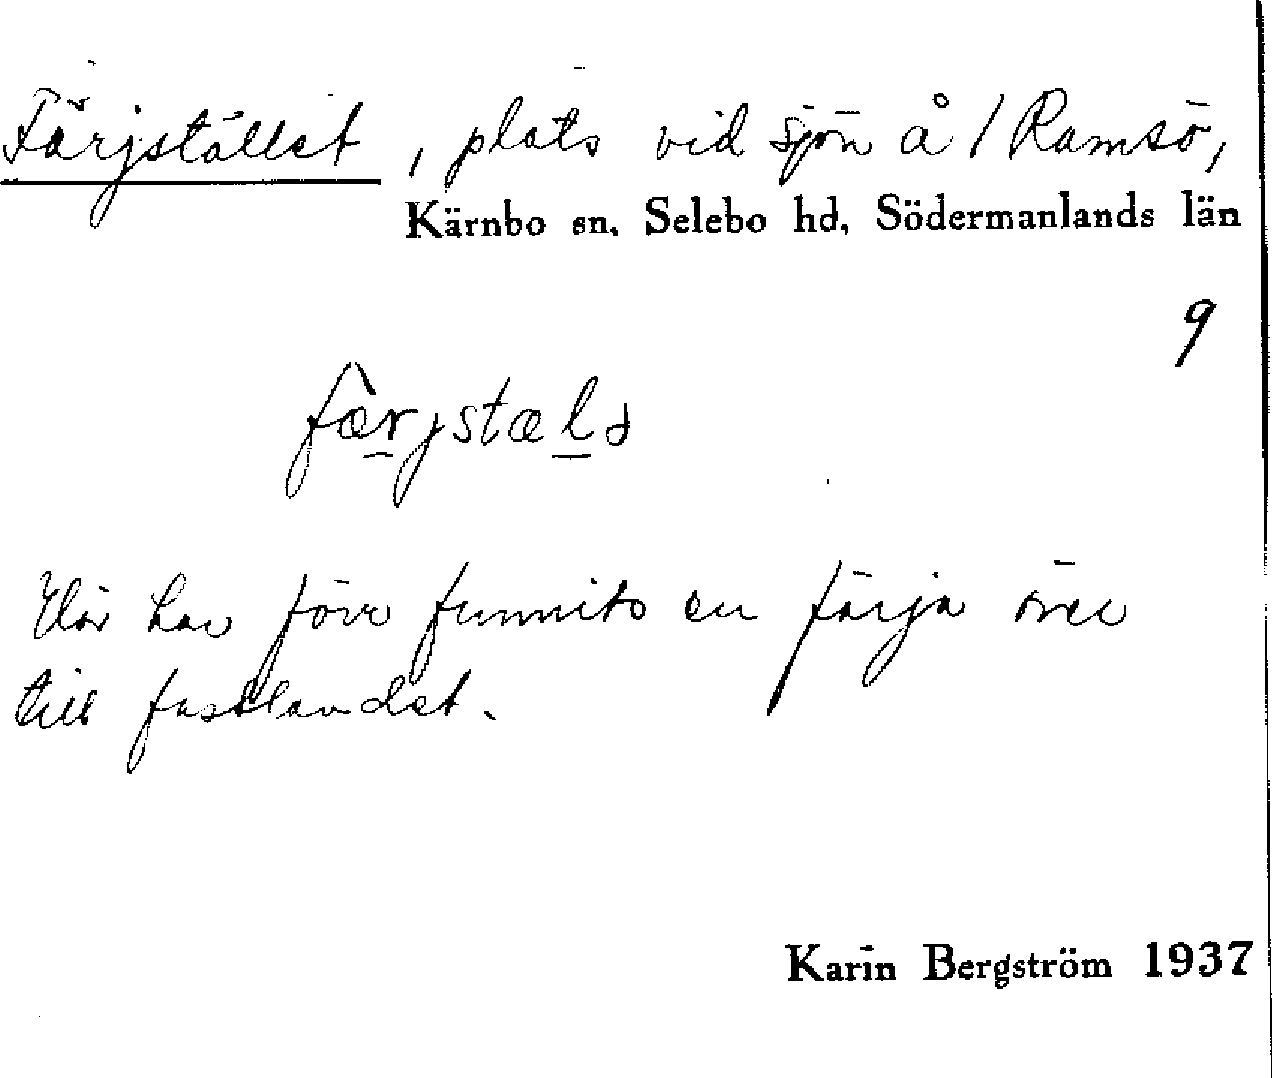 Färjstället, plats vid sjön å / Ramsö,
Kärnbo sn, Selebo hd, Södermanlands län
9
færjstælə
Här har förr funnits en färja över
till fastlandet.
Karin Bergström 1937